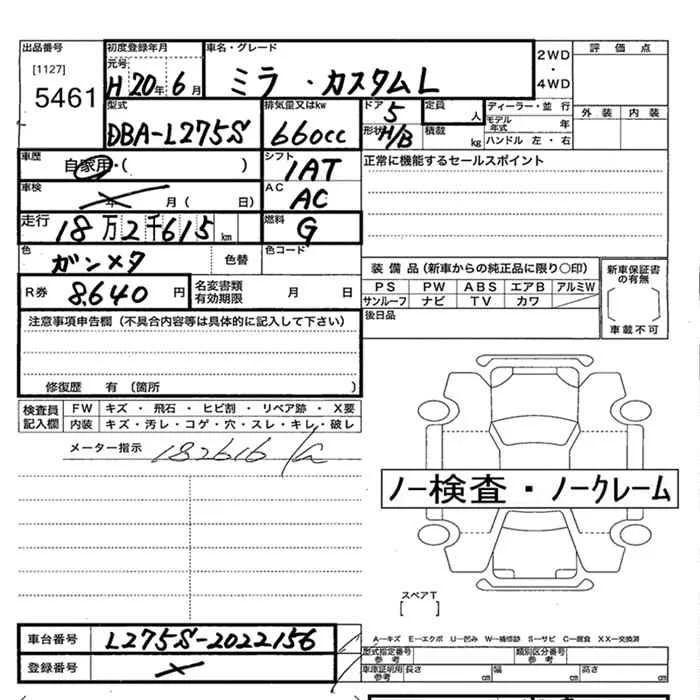 出品番号
[1127]
5461
初度登録年月
元号
H 20年 6月
車名・グレード
ミラ・カスタムL
2WD
・
4WD
評価点
外装 内装
型式
DBA-L275S
排気量又はkw
660cc
ドア
5
形状
H/B
定員
人
積載
kg
ディーラー・並行
モデル年式 年
ハンドル 左・右
車歴
自家用・( )
シフト
1AT
正常に機能するセールスポイント
車検
年 月( 日)
AC
AC
走行
18万2千615km
燃料
G
色
ガンメタ
色替
色コード
R券 8,640 円
名変書類
有効期限
月 日
装備品(新車からの純正品に限り○印)
PS PW ABS エアB アルミW
サンルーフ ナビ TV カワ
新車保証書
の有無
車載不可
後日品
注意事項申告欄(不具合内容等は具体的に記入して下さい)
修復歴 有(箇所 )
検査員
記入欄
FW キズ・飛石・ヒビ割・リペア跡・X要
内装 キズ・汚レ・コゲ・穴・スレ・キレ・破レ
メーター指示 182616
ノー検査・ノークレーム
スペアT
[ ]
車台番号 L275S-2022156
登録番号
A−キズ E−エクボ U−凹み W−補修跡 S−サビ C−腐食 XX−交換済
型式指定番号
参考
類別区分番号
参考
車庫証明用
参考
長さ cm 幅 cm 高さ cm